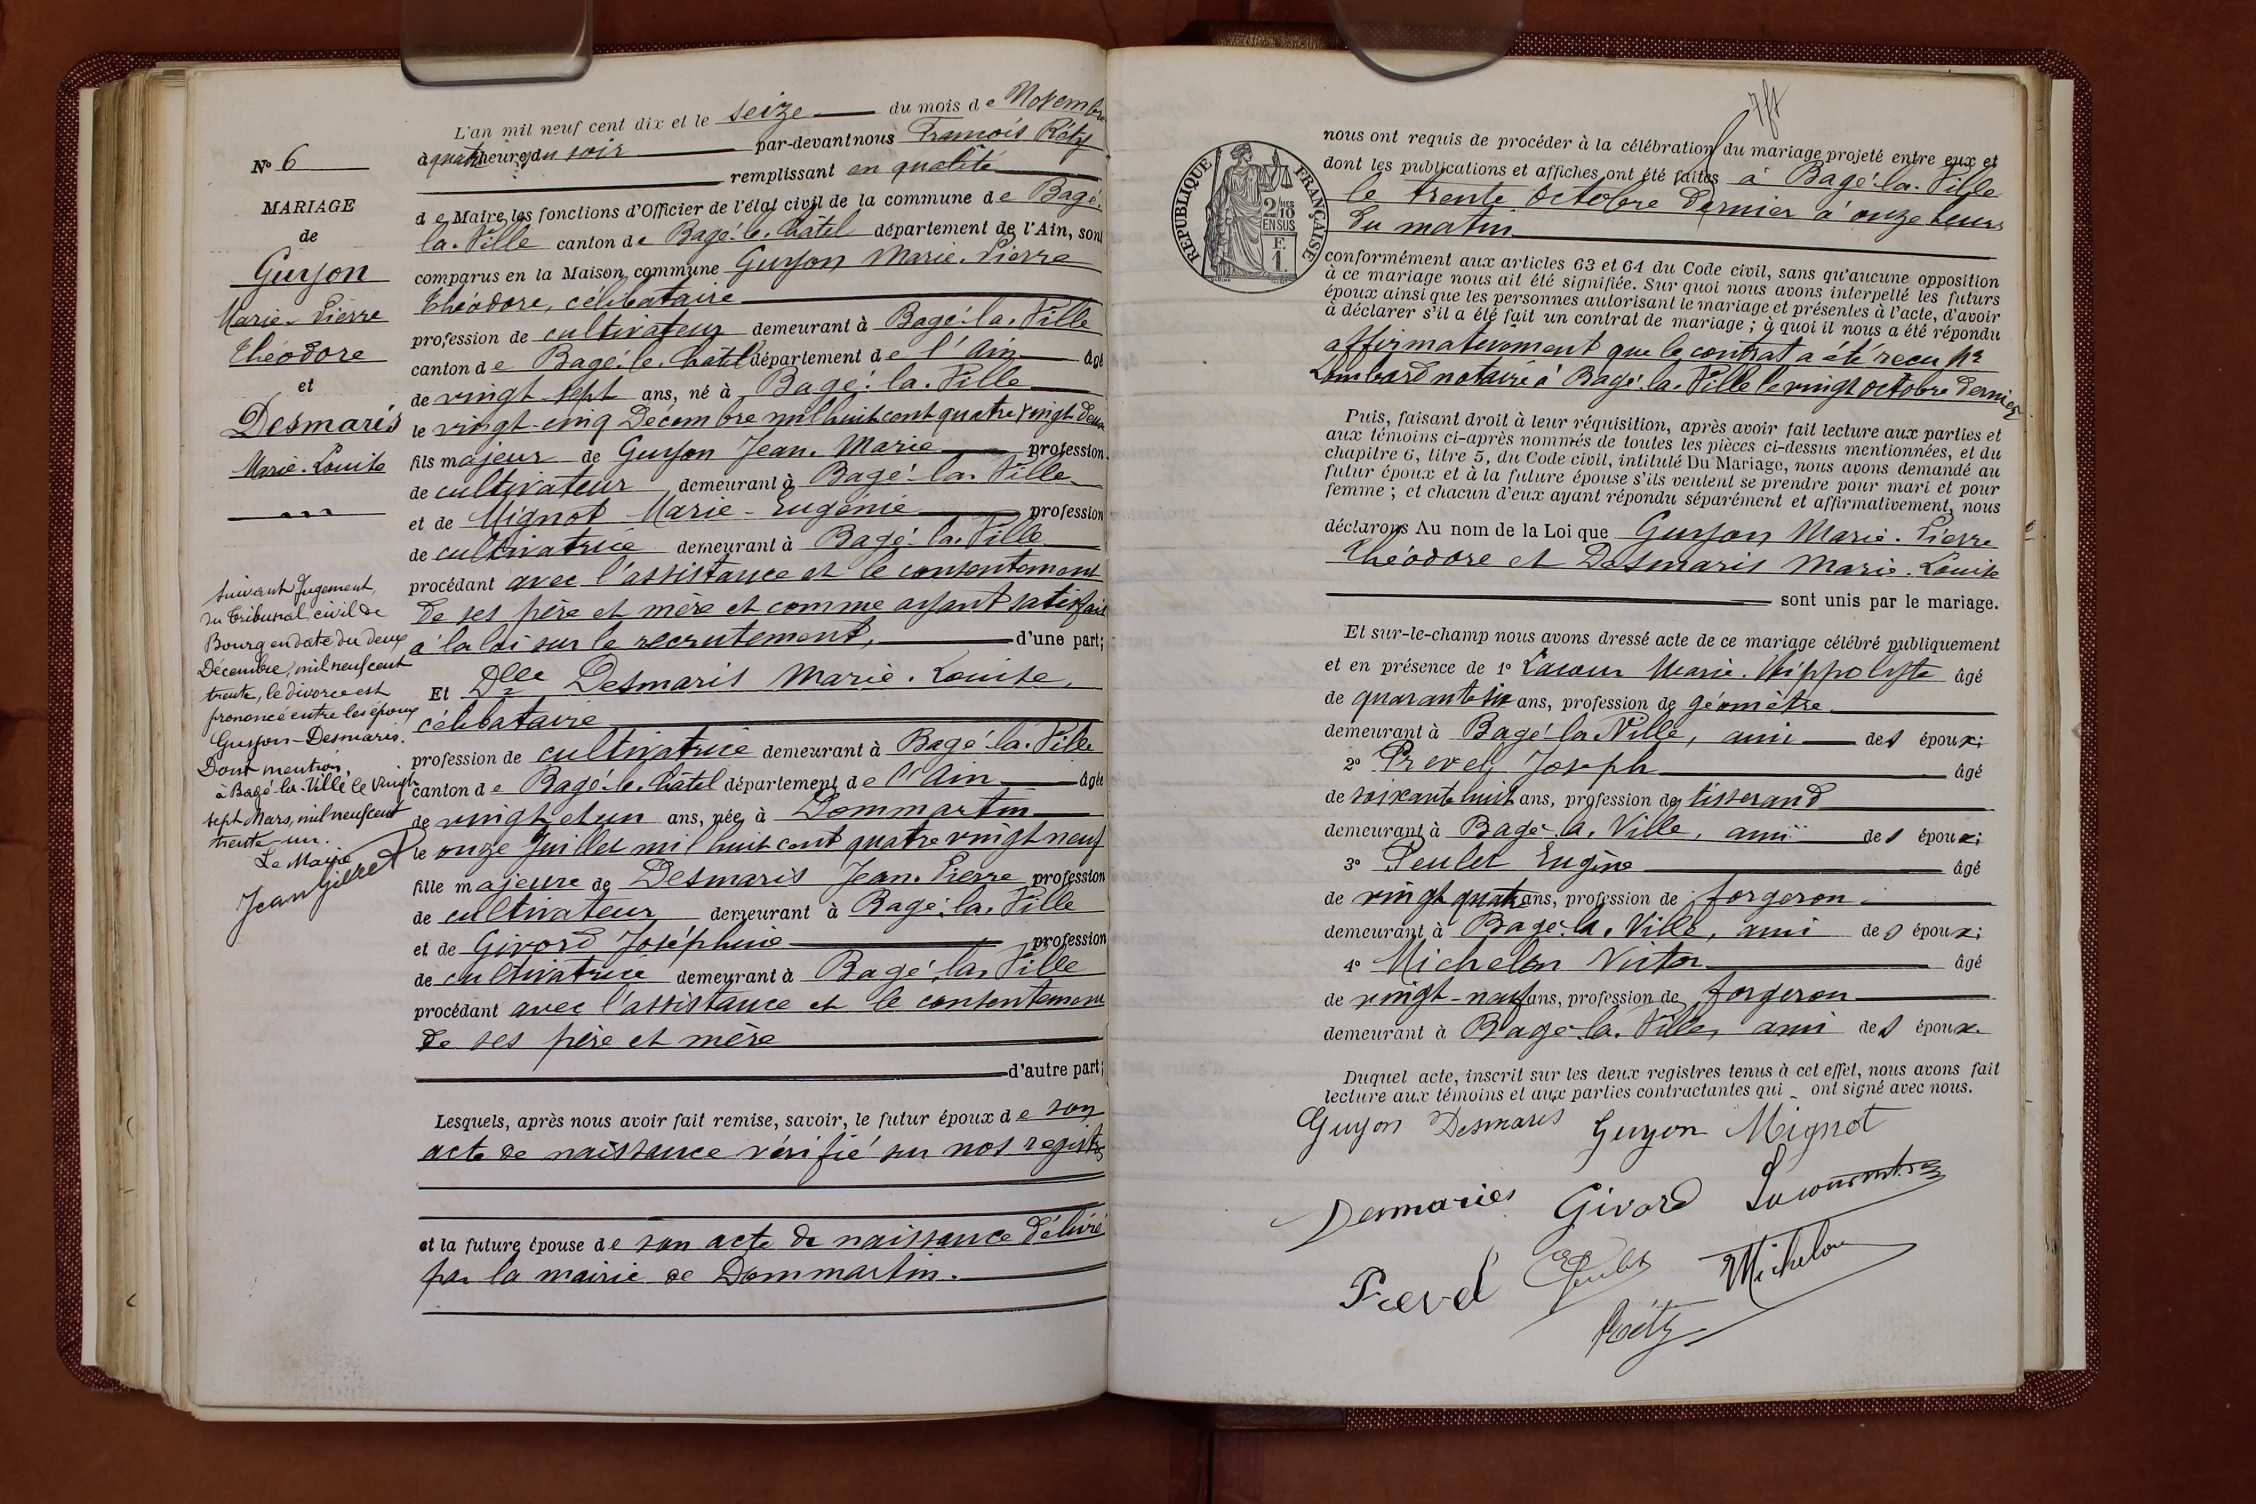 L'an mil neuf cent dix et le seize du mois de Novembre
à quatre heures du soir par-devant nous François Réty
remplissant en qualité
de Maire les fonctions d'Officier de l'état civil de la commune de Bagé-
la-Ville canton de Bagé-le-Châtel département de l'Ain, sont
comparus en la Maison commune Guyon Marie-Pierre
Théodore, célibataire
profession de cultivateur demeurant à Bagé-la-Ville
canton de Bagé-le-Châtel département de l'Ain âgé
de vingt-sept ans, né à Bagé-la-Ville
le vingt-cinq Décembre mil huit cent quatre vingt deux
fils majeur de Guyon Jean-Marie profession
de cultivateur demeurant à Bagé-la-Ville
et de Mignot Marie-Eugénie profession
de cultivatrice demeurant à Bagé-la-Ville
procédant avec l'assistance et le consentement
de ses père et mère et comme ayant satisfait
à la loi sur le recrutement, d'une part;
Et Dlle Desmaris Marie-Louise,
célibataire
profession de cultivatrice demeurant à Bagé-la-Ville
canton de Bagé-le-Châtel département de l'Ain âgée
de vingt et un ans, née à Dommartin
le onze Juillet mil huit cent quatre vingt neuf
fille majeure de Desmaris Jean-Pierre profession
de cultivateur demeurant à Bagé-la-Ville
et de Givord Joséphine profession
de cultivatrice demeurant à Bagé-la-Ville
procédant avec l'assistance et le consentement
de ses père et mère
d'autre part;
Lesquels, après nous avoir fait remise, savoir, le futur époux de son
acte de naissance vérifié sur nos registres
et la future épouse de son acte de naissance délivré
par la mairie de Dommartin.
N° 6
MARIAGE
de
Guyon
Marie-Pierre
Théodore
et
Desmaris
Marie-Louise
Suivant Jugement
du tribunal civil de
Bourg en date du deux
Décembre, mil neuf cent
trente, le divorce est
prononcé entre les époux
Guyon-Desmaris.
Dont mention,
à Bagé-la-Ville le vingt-
sept Mars, mil neuf cent
trente-un.
Le Maire
REPUBLIQUE FRANÇAISE
2/10
EN SUS
F.
1.
nous ont requis de procéder à la célébration du mariage projeté entre eux et
dont les publications et affiches ont été faites à Bagé-la-Ville
le trente octobre dernier à onze heures
du matin
conformément aux articles 63 et 64 du Code civil, sans qu'aucune opposition
à ce mariage nous ait été signifiée. Sur quoi nous avons interpellé les futurs
époux ainsi que les personnes autorisant le mariage et présentes à l'acte, d'avoir
à déclarer s'il a été fait un contrat de mariage; à quoi il nous a été répondu
affirmativement que le contrat a été reçu pr
Lombard notaire à Bagé-la-Ville le vingt octobre dernier
Puis, faisant droit à leur réquisition, après avoir fait lecture aux parties et
aux témoins ci-après nommés de toutes les pièces ci-dessus mentionnées, et du
chapitre 6, titre 5, du Code civil, intitulé Du Mariage, nous avons demandé au
futur époux et à la future épouse s'ils veulent se prendre pour mari et pour
femme; et chacun d'eux ayant répondu séparément et affirmativement, nous
déclarons Au nom de la Loi que Guyon Marie-Pierre
Théodore et Desmaris Marie-Louise
sont unis par le mariage.
Et sur-le-champ nous avons dressé acte de ce mariage célébré publiquement
et en présence de 1° Lacour Marie-Hippolyte âgé
de quarante six ans, profession de géomètre
demeurant à Bagé-la-Ville, ami des époux;
2° Prevel Joseph âgé
de soixante huit ans, profession de tisserand
demeurant à Bagé-la-Ville, ami des époux;
3° Peulet Eugène âgé
de vingt quatre ans, profession de forgeron
demeurant à Bagé-la-Ville, ami des époux;
4° Michelon Victor âgé
de vingt-neuf ans, profession de forgeron
demeurant à Bagé-la-Ville, ami des époux.
Duquel acte, inscrit sur les deux registres tenus à cet effet, nous avons fait
lecture aux témoins et aux parties contractantes qui ont signé avec nous.
Guyon Desmaris Guyon Mignot
Desmaries Givord
Prevel Peulet Michelon
Réty